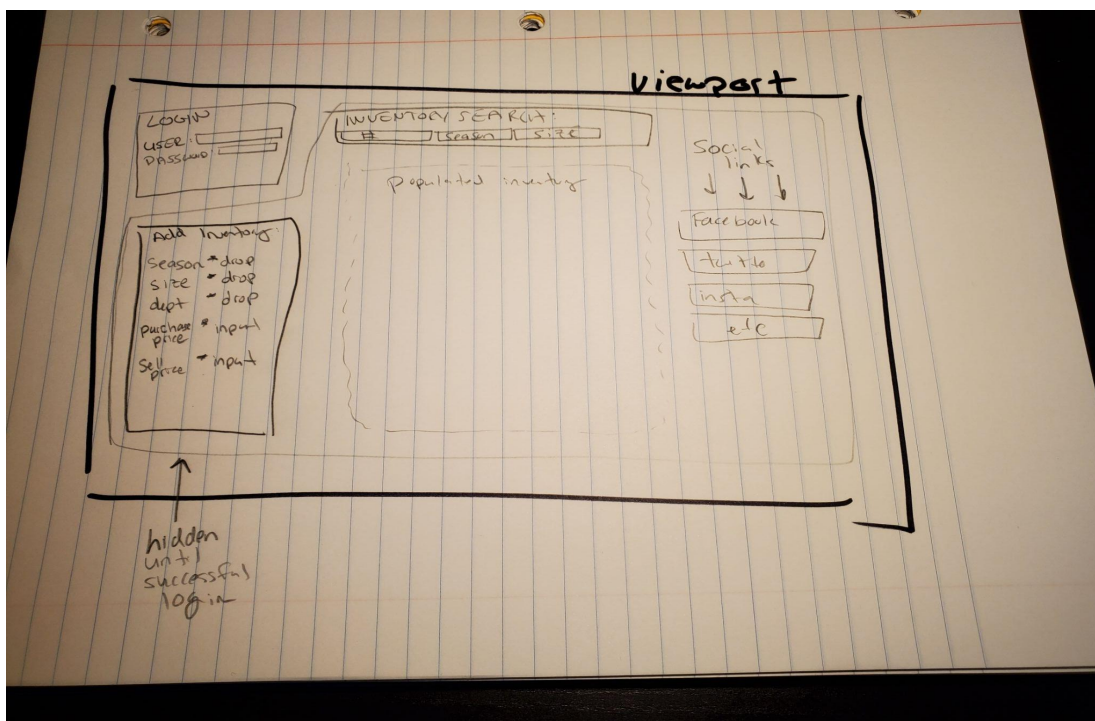 Viewport
LOGIN
USER:
PASSWORD:
INVENTORY SEARCH:
# season size
populated inventory
Social
links
Facebook
insta
etc
Add Inventory:
season * drop
size * drop
dept * drop
purchase * input
price
Sell * input
price
hidden
until
successful
login